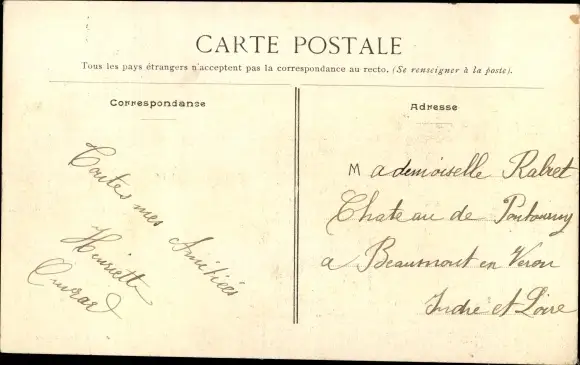 CARTE POSTALE
Tous les pays étrangers n'acceptent pas la correspondance au recto. (Se renseigner à la poste).
Correspondance
Toutes mes Amitiées
Henriette
Adresse
Mademoiselle Rabret
Chateau de Pontourny
a Beaumont en Veron
Indre et Loire